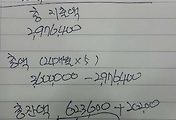 총 지출액
2,976,400
총액 (24개월 × 5)
3,600,000 - 2976400
총잔액 623,600 + 20200